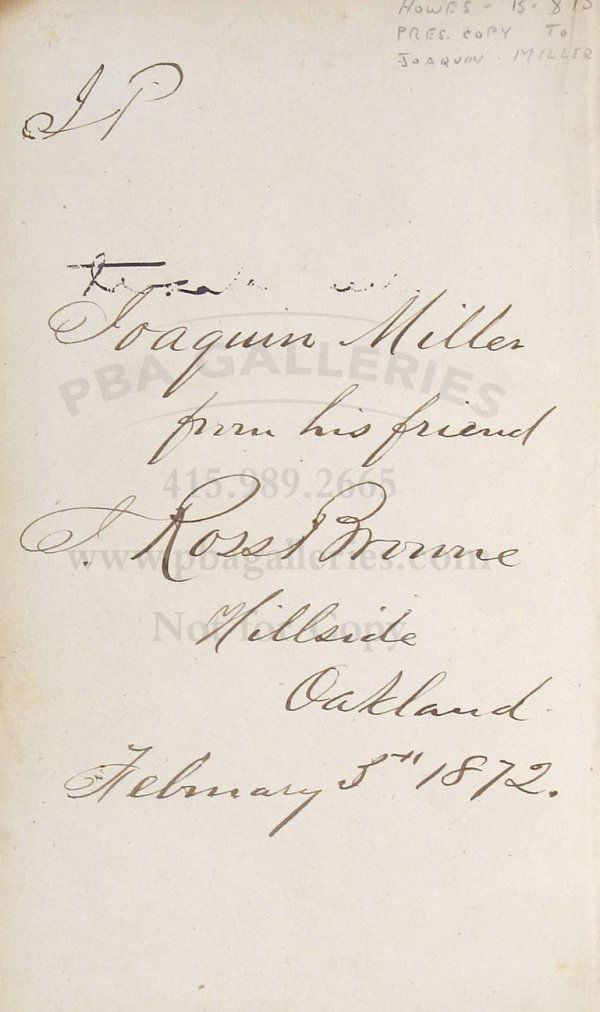 HOWES - B-875
PRES. COPY TO
JOAQUIN MILLER
JP
Joaquin Miller
PBA GALLERIES
from his friend
415.989.2665
J. Ross Browne
www.pbagalleries.com
Hillside
Not for Copy
Oakland
February 5th 1872.